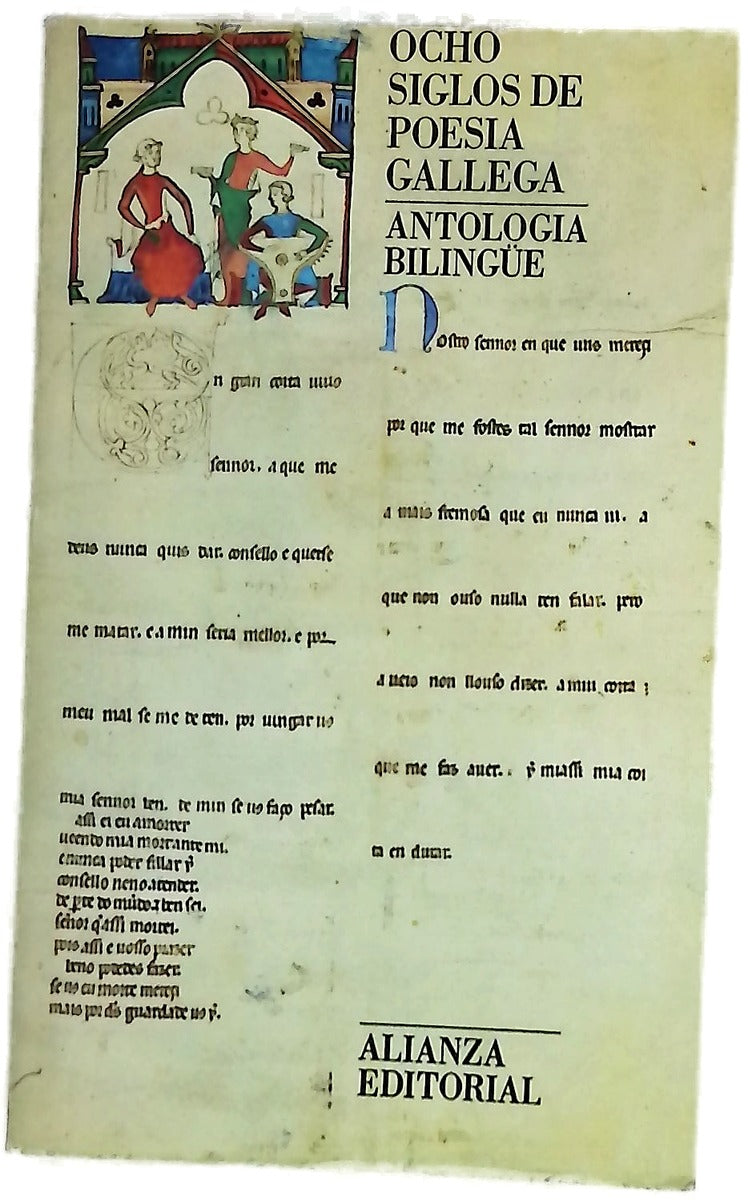 OCHO
SIGLOS DE
POESIA
GALLEGA
ANTOLOGIA
BILINGÜE
n gran coita uiuo
sennor. a que me
deus nunca quis dar. consello e querse
me matar. e a min seria mellor. e por
meu mal se me de ten. por uingar uo
mia sennor ben. de min se uo faço pesar.
assi ei eu a morrer
ueendo mia mort ante mi.
e nunca poder fillar y
consello neno atender.
de parte do mũdo a ben sei.
señor q̄ assi morrei.
pois assi e uosso prazer
beno podedes fazer.
se uo eu morte mereçi
mais por d̃s guardade uo y.
Nostro sennor en que uus mereçi
por que me fostes tal sennor mostrar
a mais fremosa que eu nunca ui. a
que non ouso nulla ren falar. pero
a ueio non llouso dizer. a mui coita
que me faz auer. y miassi mia coi
ta en durar.
ALIANZA
EDITORIAL